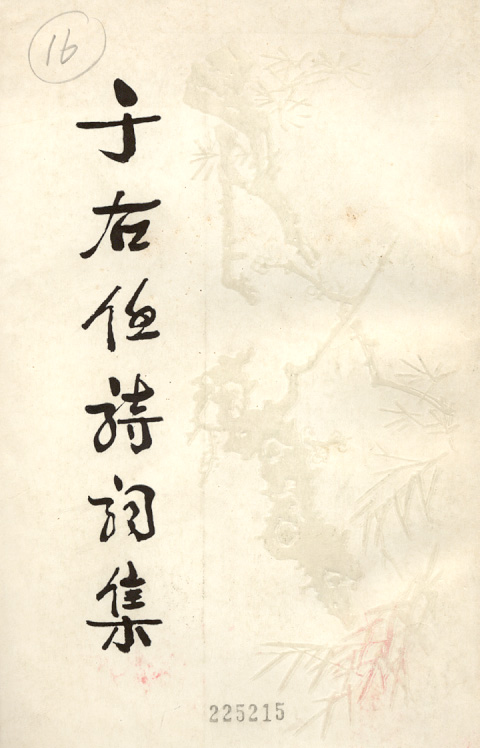 16
于右任詩詞集
225215